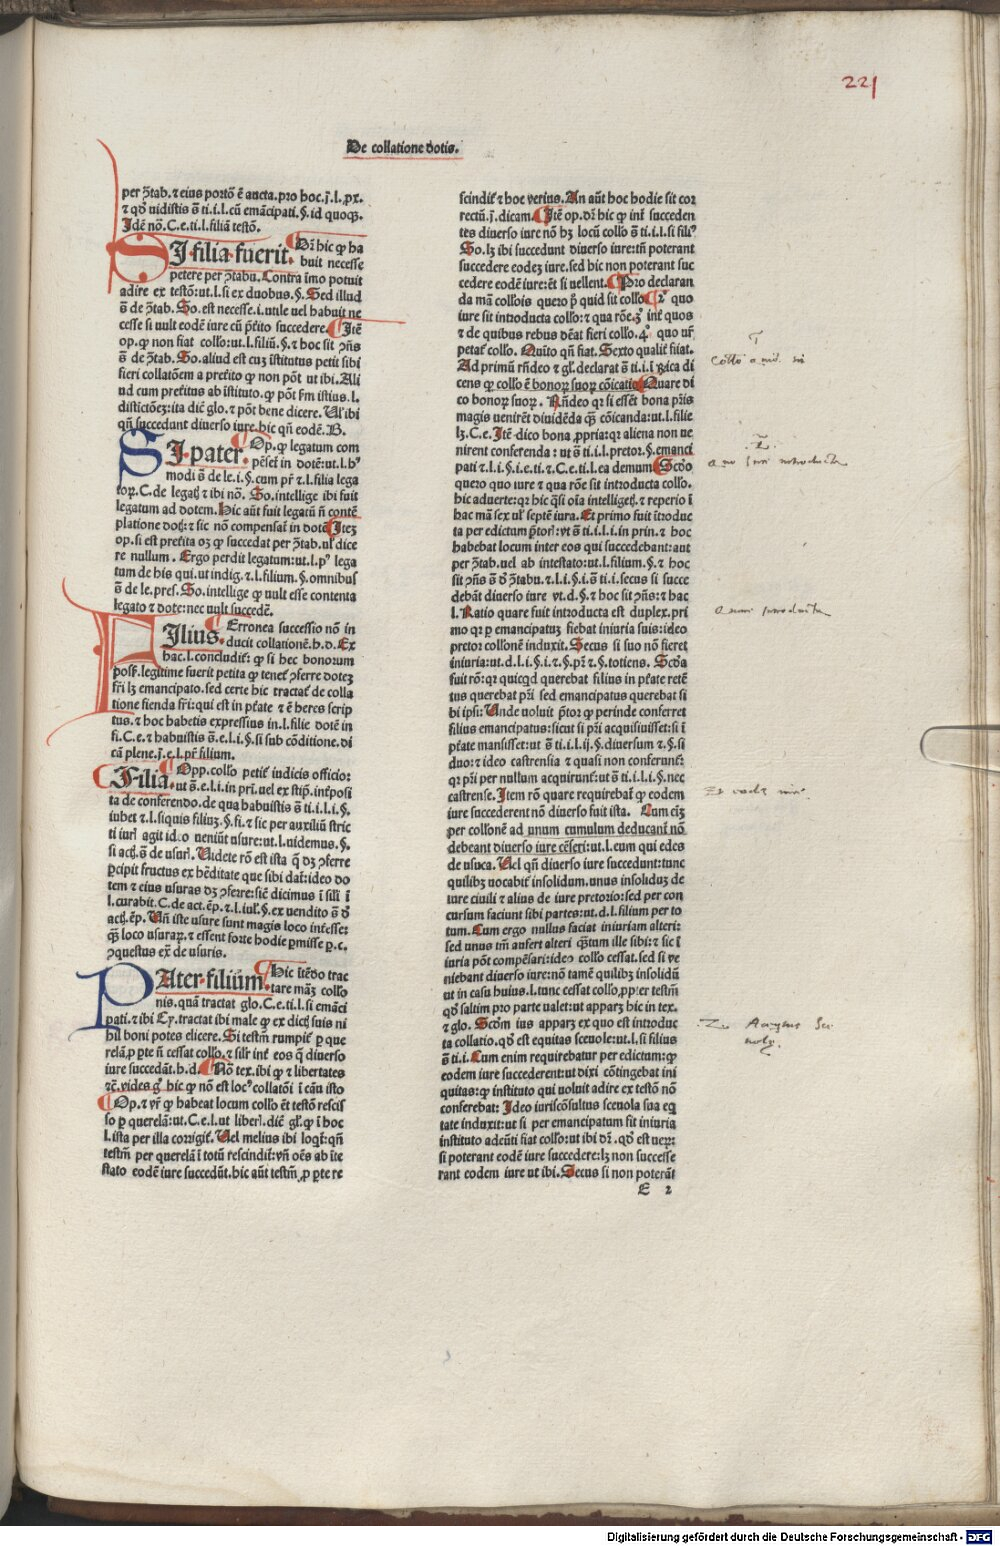 221
De collatione dotis.
per ꝯtab. ⁊ eius portõ ē aucta. pro hoc. j̄. l. px.
⁊ qđ uidistis s̄ ti. i. l. cū emācipati. §. id quoqꝫ.
Idē nõ. C. e. ti. l. filiā testõ.
SI filia fuerit. ¶ Dꝛ hic ꝙ ha
buit necesse
petere per ꝯtabu. Contra imo potuit
adire ex testõ: ut. l. si ex duobus. §. Sed illud
s̄ de ꝯtab. So. est necesse. i. utile uel habuit ne
cesse si uult eodē iure cū p̄tito succedere. ¶ Itē
op. ꝙ non fiat collo: ut. l. filiū. §. ⁊ hoc sit ꝯn̄s
s̄ de ꝯtab. So. aliud est cuꝫ īstitutus petit sibi
fieri collatõem a preƭito ꝙ non põt ut ibi. Ali
ud cum preƭitus ab īstituto. ꝙ põt ſm istius. l.
distictõeꝫ: ita dic̄ glo. ⁊ põt bene dicere. Ul' ibi
qn̄ succedunt diuerso iure. hic qn̄ eodē. B.
SI pater. ¶ Op. ꝙ legatum com
pēseƭ in dotē: ut. l. hꝰ
modi s̄ de le. i. §. cum pr̄ ⁊ l. filia lega
toꝝ. C. de legaƭ ⁊ ibi nõ. So. intellige ibi fuit
legatum ad dotem. Hic aūt fuit legatū ñ contē
platione doƭ: ⁊ sic nõ compensaƭ in dotē ¶ Iteꝫ
op. si est preƭita oꝫ ꝙ succedat per ꝯtab. ul' dice
re nullum. Ergo perdit legatum: ut. l. pꝰ lega
tum de his qui. ut indig. ⁊ l. filium. §. omnibus
s̄ de le. pres. So. intellige ꝙ uult esse contenta
legato ⁊ dote: nec uult succedē.
FIlius. ¶ Erronea successio nõ in
ducit collationē. h. d. Ex
hac. l. concludiƭ: ꝙ si hec bonorum
poss. legitime fuerit petita ꝙ teneƭ ꝯferre doteꝫ
fr̄i lꝫ emancipato. sed certe hic tractaƭ de colla
tione fienda fr̄i: qui est in p̄tate ⁊ ē heres scrip
tus. ⁊ hoc habetis expressius in. l. filie dotē in
fi. C. e. ⁊ habuistis s̄. e. l. i. §. si sub cõditione. di
cā plene. j̄. e. l. pr̄ filium.
¶ Filia. ¶ Opp. collo petiƭ iudicis officio:
ut s̄. e. l. i. in pri. uel ex stip. int̄posi
ta de conferendo. de qua habuistis s̄ ti. i. l. i. §.
iubet ⁊ l. siquis filiuꝫ. §. fi. ⁊ sic per auxiliū stric
ti iuri agit ideo ueniūt usure: ut. l. uidemus. §.
si acƭ. s̄ de usuri. Uidete rõ est ista q̄ dꝫ ꝯferre
ꝑcipit fructus ex heditate que sibi daƭ: ideo do
tem ⁊ eius usuras dꝫ ꝯferre: sic̄ dicimus ī sili ī
l. curabit. C. de act. ēp. ⁊ l. iul'. §. ex uendito s̄ đ
acƭ. ēp. Uñ iste usure sunt magis loco int̄esse:
qꝫ loco usuraꝝ. ⁊ essent forte hodie ꝑmisse ꝑ. c.
ꝯquestus ex̄ de usuris.
PAter filium. ¶ Hic ītēdo trac
tare māꝫ collo
nis. quā tractat glo. C. e. ti. l. si emāci
pati. ⁊ ibi Cy. tractat ibi male ꝙ ex dicƭ suis ni
hil boni potes elicere. Si testm̄ rumpiƭ ꝑ que
relā, ꝓ ꝑte ñ cessat collo. ⁊ silr int̄ eos q̄ diuerso
iure succedāt. h. d. ¶ Nõ tex. ibi ꝙ ⁊ libertates
⁊c̄. vides gͦ hic ꝙ nõ est locꝰ collatõi ī cāu isto
¶ Op. ⁊ vr̄ ꝙ habeat locum collo ēt testõ rescis
so ꝑ querelā: ut. C. e. l. ut liberi. dic̄ gl'. ꝙ ī hoc
l. ista per illa corrigiƭ. Uel melius ibi loqƭ: qñ
testm̄ per querelā ī totū rescindiƭ: vñ oēs ab īte
stato eodē iure succedūt. hic aūt testm̄ ꝓ ꝑte re
scindiƭ ⁊ hoc verius. An aūt hoc hodie sit cor
rectū. j̄. dicam. ¶ Itē op. dꝛ hic ꝙ int̄ succeden
tes diuerso iure nõ hꝫ locū collo s̄ ti. i. l. si filiꝰ
So. lꝫ ibi succedunt diuerso iure: tn̄ poterant
succedere eodeꝫ iure. sed hic non poterant suc
cedere eodē iure: ēt si uellent. ¶ Pro declaran
da mā collõis quero p̄ quid sit collo ¶ 2ͦ quo
iure sit introducta collo: ⁊ qua rõe. 3ͦ int̄ quos
⁊ de quibus rebus dēat fieri collo. 4ͦ quo ur̄
petaƭ collo. Quīto qn̄ fiat. Sexto qualiƭ fiat.
Ad primū rn̄deo ⁊ gl'. declarat s̄ ti. i. ī rica di
cens ꝙ collo ē bonoꝝ suoꝝ cõicatio ¶ Quare di
co bonoꝝ suoꝝ. Rn̄deo qꝛ si essēt bona pr̄is
magis uenirēt diuidēda qꝫ cõicanda: ut. l. filie
lꝫ. C. e. Itē dico bona ꝓpria: qꝛ aliena non ue
nirent conferenda: ut s̄ ti. i. l. pretor. §. emanci
pati ⁊ l. i. §. i. e. ti. ⁊ C. e. ti. l. ea demum ¶ Scd̄o
quero quo iure ⁊ qua rõe sit introducta collo.
hic aduerte: qꝛ hic q̄si oīa intelligeƭ. ⁊ reperio ī
hac mā sex ul' septē iura. Et primo fuit ītroduc
ta per edictum p̄tori: vt s̄ ti. i. l. i. in prin. ⁊ hoc
habebat locum inter eos qui succedebant: aut
per ꝯtab. uel ab intestato: ut. l. filium. §. ⁊ hoc
sit ꝯn̄s s̄ đ ꝯtabu. ⁊ l. i. §. i. s̄ ti. i. secus si succe
debāt diuerso iure vt. d. §. ⁊ hoc sit ꝯn̄s: ⁊ hac
l. Ratio quare fuit introducta est duplex. pri
mo qꝛ ꝑ emancipatuꝫ fiebat iniuria suis: ideo
pretor collonē induxit. Secus si suo nõ fieret
iniuria: ut. d. l. i. §. i. ⁊ §. pr̄ ⁊ §. totiens. Scd̄a
fuit rõ: qꝛ quicqd querebat filius in p̄tate retē
tus querebat pr̄i sed emancipatus querebat si
bi ipsi: Unde uoluit p̄tor ꝙ perinde conferret
filius emancipatus: sicut si pr̄i acquisiuisset: si ī
p̄tate mansisset: ut s̄ ti. i. l. ij. §. diuersum ⁊ §. si
duo: ⁊ ideo castrensia ⁊ quasi non conferunƭ:
qꝛ pr̄i per nullum acquirunƭ: ut s̄ ti. i. l. i. §. nec
castrense. Item rõ quare requirebaƭ ꝙ eodem
iure succederent nõ diuerso fuit ista. Cum ciꝫ
per collonē ad unum cumulum deducanƭ nõ
debeant diuerso iure cēseri: ut. l. eum qui edes
de usuca. Uel qn̄ diuerso iure succedunt: tunc
quilibꝫ uocabiƭ insolidum. unus insoliduꝫ de
iure ciuili ⁊ alius de iure pretorio: sed per con
cursum faciunt sibi partes: ut. d. l. filium per to
tum. Cum ergo nullus faciat iniuriam alteri:
sed unus tm̄ aufert alteri q̄tum ille sibi: ⁊ sic ī
iuria põt compēsari: ideo collo cessat. sed si ve
niebant diuerso iure: nõ tamē quilibꝫ insolidū
ut in casu huius. l. tunc cessat collo, ꝓpter testm̄
qđ saltim pro parte ualet: ut apparꝫ hic in tex.
⁊ glo. Scd̄m ius apparꝫ ex quo est introduc
ta collatio. qđ est equitas sceuole: ut. l. si filius
s̄ ti. i. Cum enim requirebatur per edictum: ꝙ
eodem iure succederent: ut dixi cõtingebat ini
quitas: ꝙ instituto qui uoluit adire ex testõ nõ
conferebaƭ: Ideo iuriscõsultus sceuola sua eq
tate induxit: ut si per emancipatum fit iniuria
instituto adeūti fiat collo: ut ibi dꝛ. qđ est ueꝝ:
si poterant eodē iure succedere: lꝫ non successe
rant eodem iure ut ibi. Secus si non poterāt
E 2